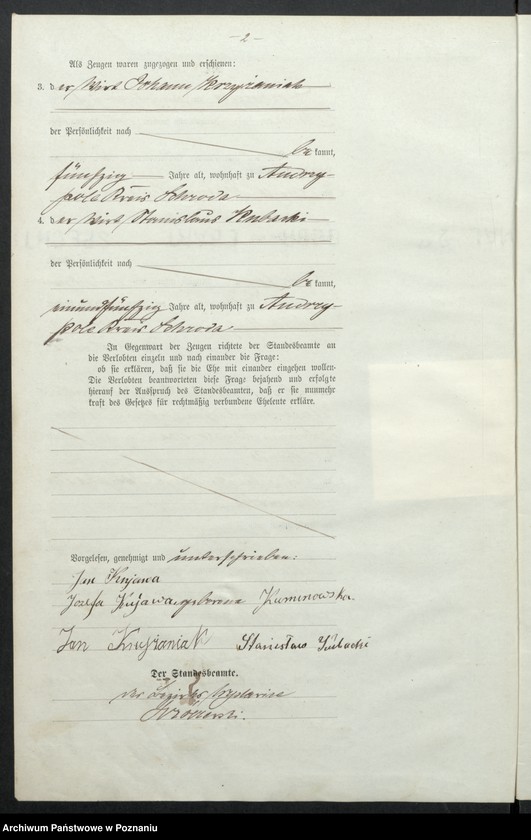 -2-
Als Zeugen waren zugezogen und erschienen:
3. der Wirt Johann Krzyżaniak
der Persönlichkeit nach
be kannt,
fünfzig Jahre alt, wohnhaft zu Andrze-
pole Kreis Schroda
4. der Wirt Stanislaus Kubacki
der Persönlichkeit nach
be kannt,
einundfünfzig Jahre alt, wohnhaft zu Andrze-
pole Kreis Schroda
In Gegenwart der Zeugen richtete der Standesbeamte an
die Verlobten einzeln und nach einander die Frage:
ob sie erklären, daß sie die Ehe mit einander eingehen wollen.
Die Verlobten beantworteten diese Frage bejahend und erfolgte
hierauf der Ausspruch des Standesbeamten, daß er sie nunmehr
kraft des Gesetzes für rechtmäßig verbundene Eheleute erkläre.
Vorgelesen, genehmigt und unterschrieben:
Jan Kujawa
Jozefa Kujawa geborene Kaminowska.
Jan Krzyżaniak Stanisław Kubacki
Der Standesbeamte.
Archiwum Państwowe w Poznaniu